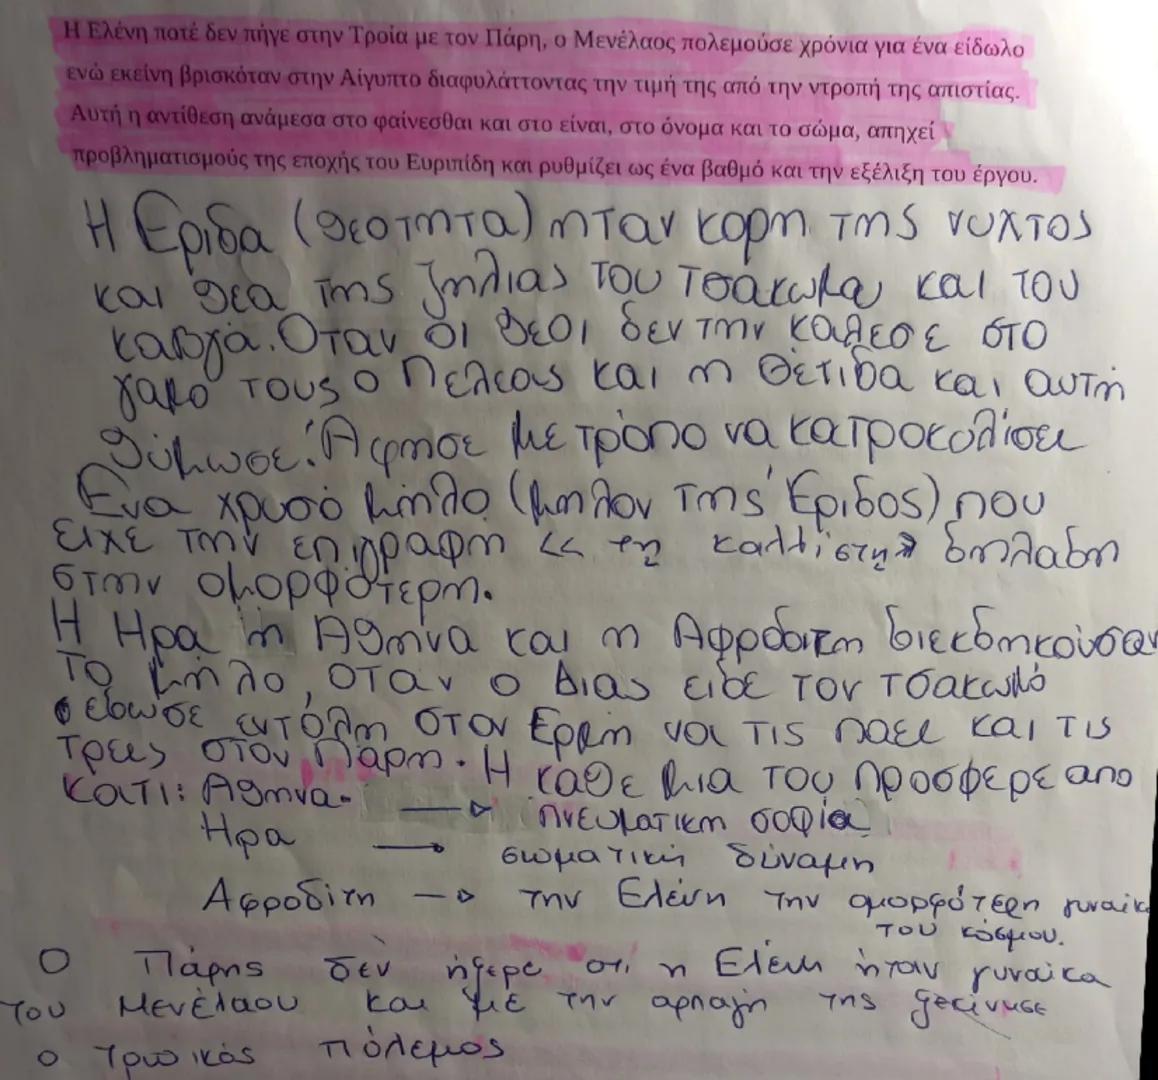 Η Ελένη ποτέ δεν πήγε στην Τροία με τον Πάρη, ο Μενέλαος πολεμούσε χρόνια για ένα είδωλο
ενώ εκείνη βρισκόταν στην Αίγυπτο διαφυλάττοντας την τιμή της από την ντροπή της απιστίας.
Αυτή η αντίθεση ανάμεσα στο φαίνεσθαι και στο είναι, στο όνομα και το σώμα, απηχεί
προβληματισμούς της εποχής του Ευριπίδη και ρυθμίζει ως ένα βαθμό και την εξέλιξη του έργου.
Η Εριδα (θεοτητα) ηταν κορη της νυχτος
και θεα της ζηλιας του τσακωμα και του
καβγά. Οταν οι θεοι δεν την καλεσε στο
γαμο τους ο Πελεας και η Θέτιδα και αυτή
θύμωσε. Αφησε με τρόπο να κατροκολίσει
Ενα χρυσό μήλο (μηλον της Έριδος) που
ειχε την επιγραφη << τη καλλίστη >> δηλαδη
στην ομορφότερη.
Η Ηρα η Αθηνα και η Αφροδιτη διεκδηκούσαν
το μήλο, οταν ο Διας ειδε τον τσακωμό
εδωσε εντόλη στον Ερμη να τις παει και τις
τρεις στον Παρη. Η καθε μια του προσφερε απο
κατι: Αθηνα → πνευματικη σοφία
Ηρα → σωματική δύναμη
Αφροδίτη → την Ελένη την ομορφότερη γυναικ
του κόσμου.
Ο Πάρης δεν ήξερε οτι η Ελένη ήταν γυναίκα
του Μενέλαου και με την αρπαγή της ξεκίνησε
ο τρωικός πόλεμος